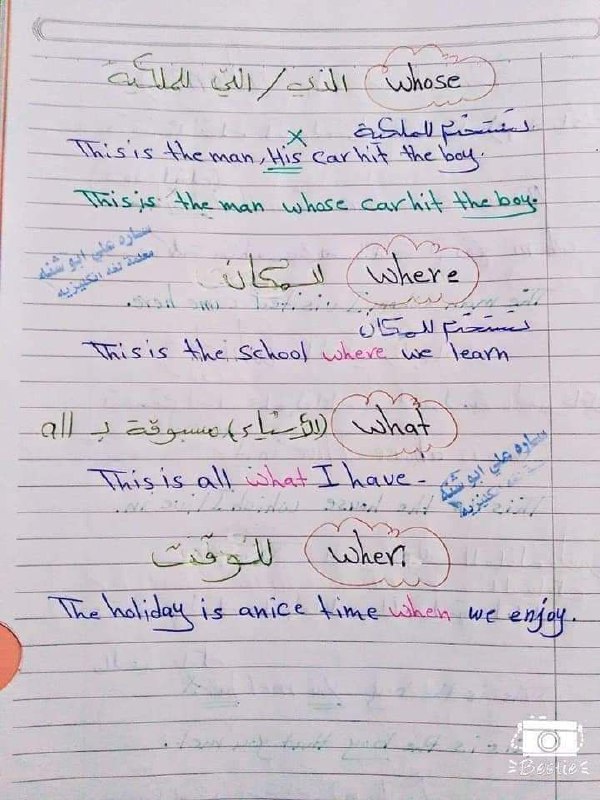 whose الذي / التي للملكية
تستخدم للملكية
This is the man, His car hit the boy.
This is the man whose car hit the boy.
ساره علي ابو شنه
معلمة لغه انكليزيه
where للمكان
تستخدم للمكان
This is the school where we learn
what (للأشياء) مسبوقة بـ all
This is all what I have.
ساره علي ابو شنه
when للوقت
The holiday is a nice time when we enjoy.
Beetle